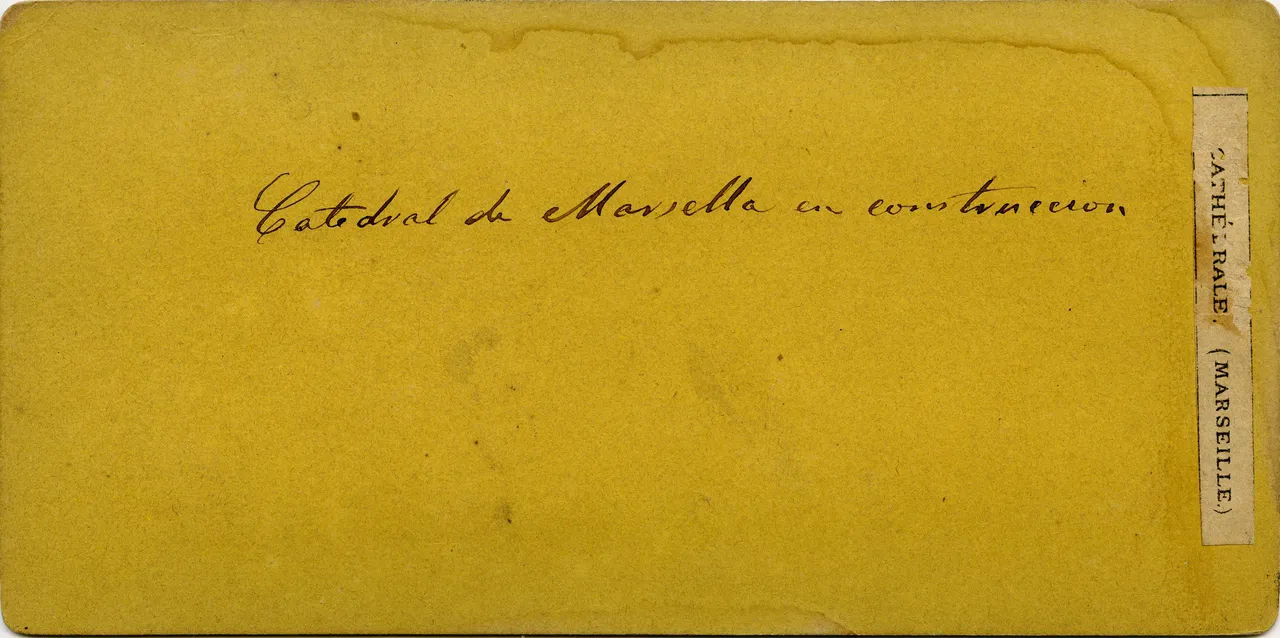 Catedral de Marsella en construccion
CATHÉDRALE. (MARSEILLE.)